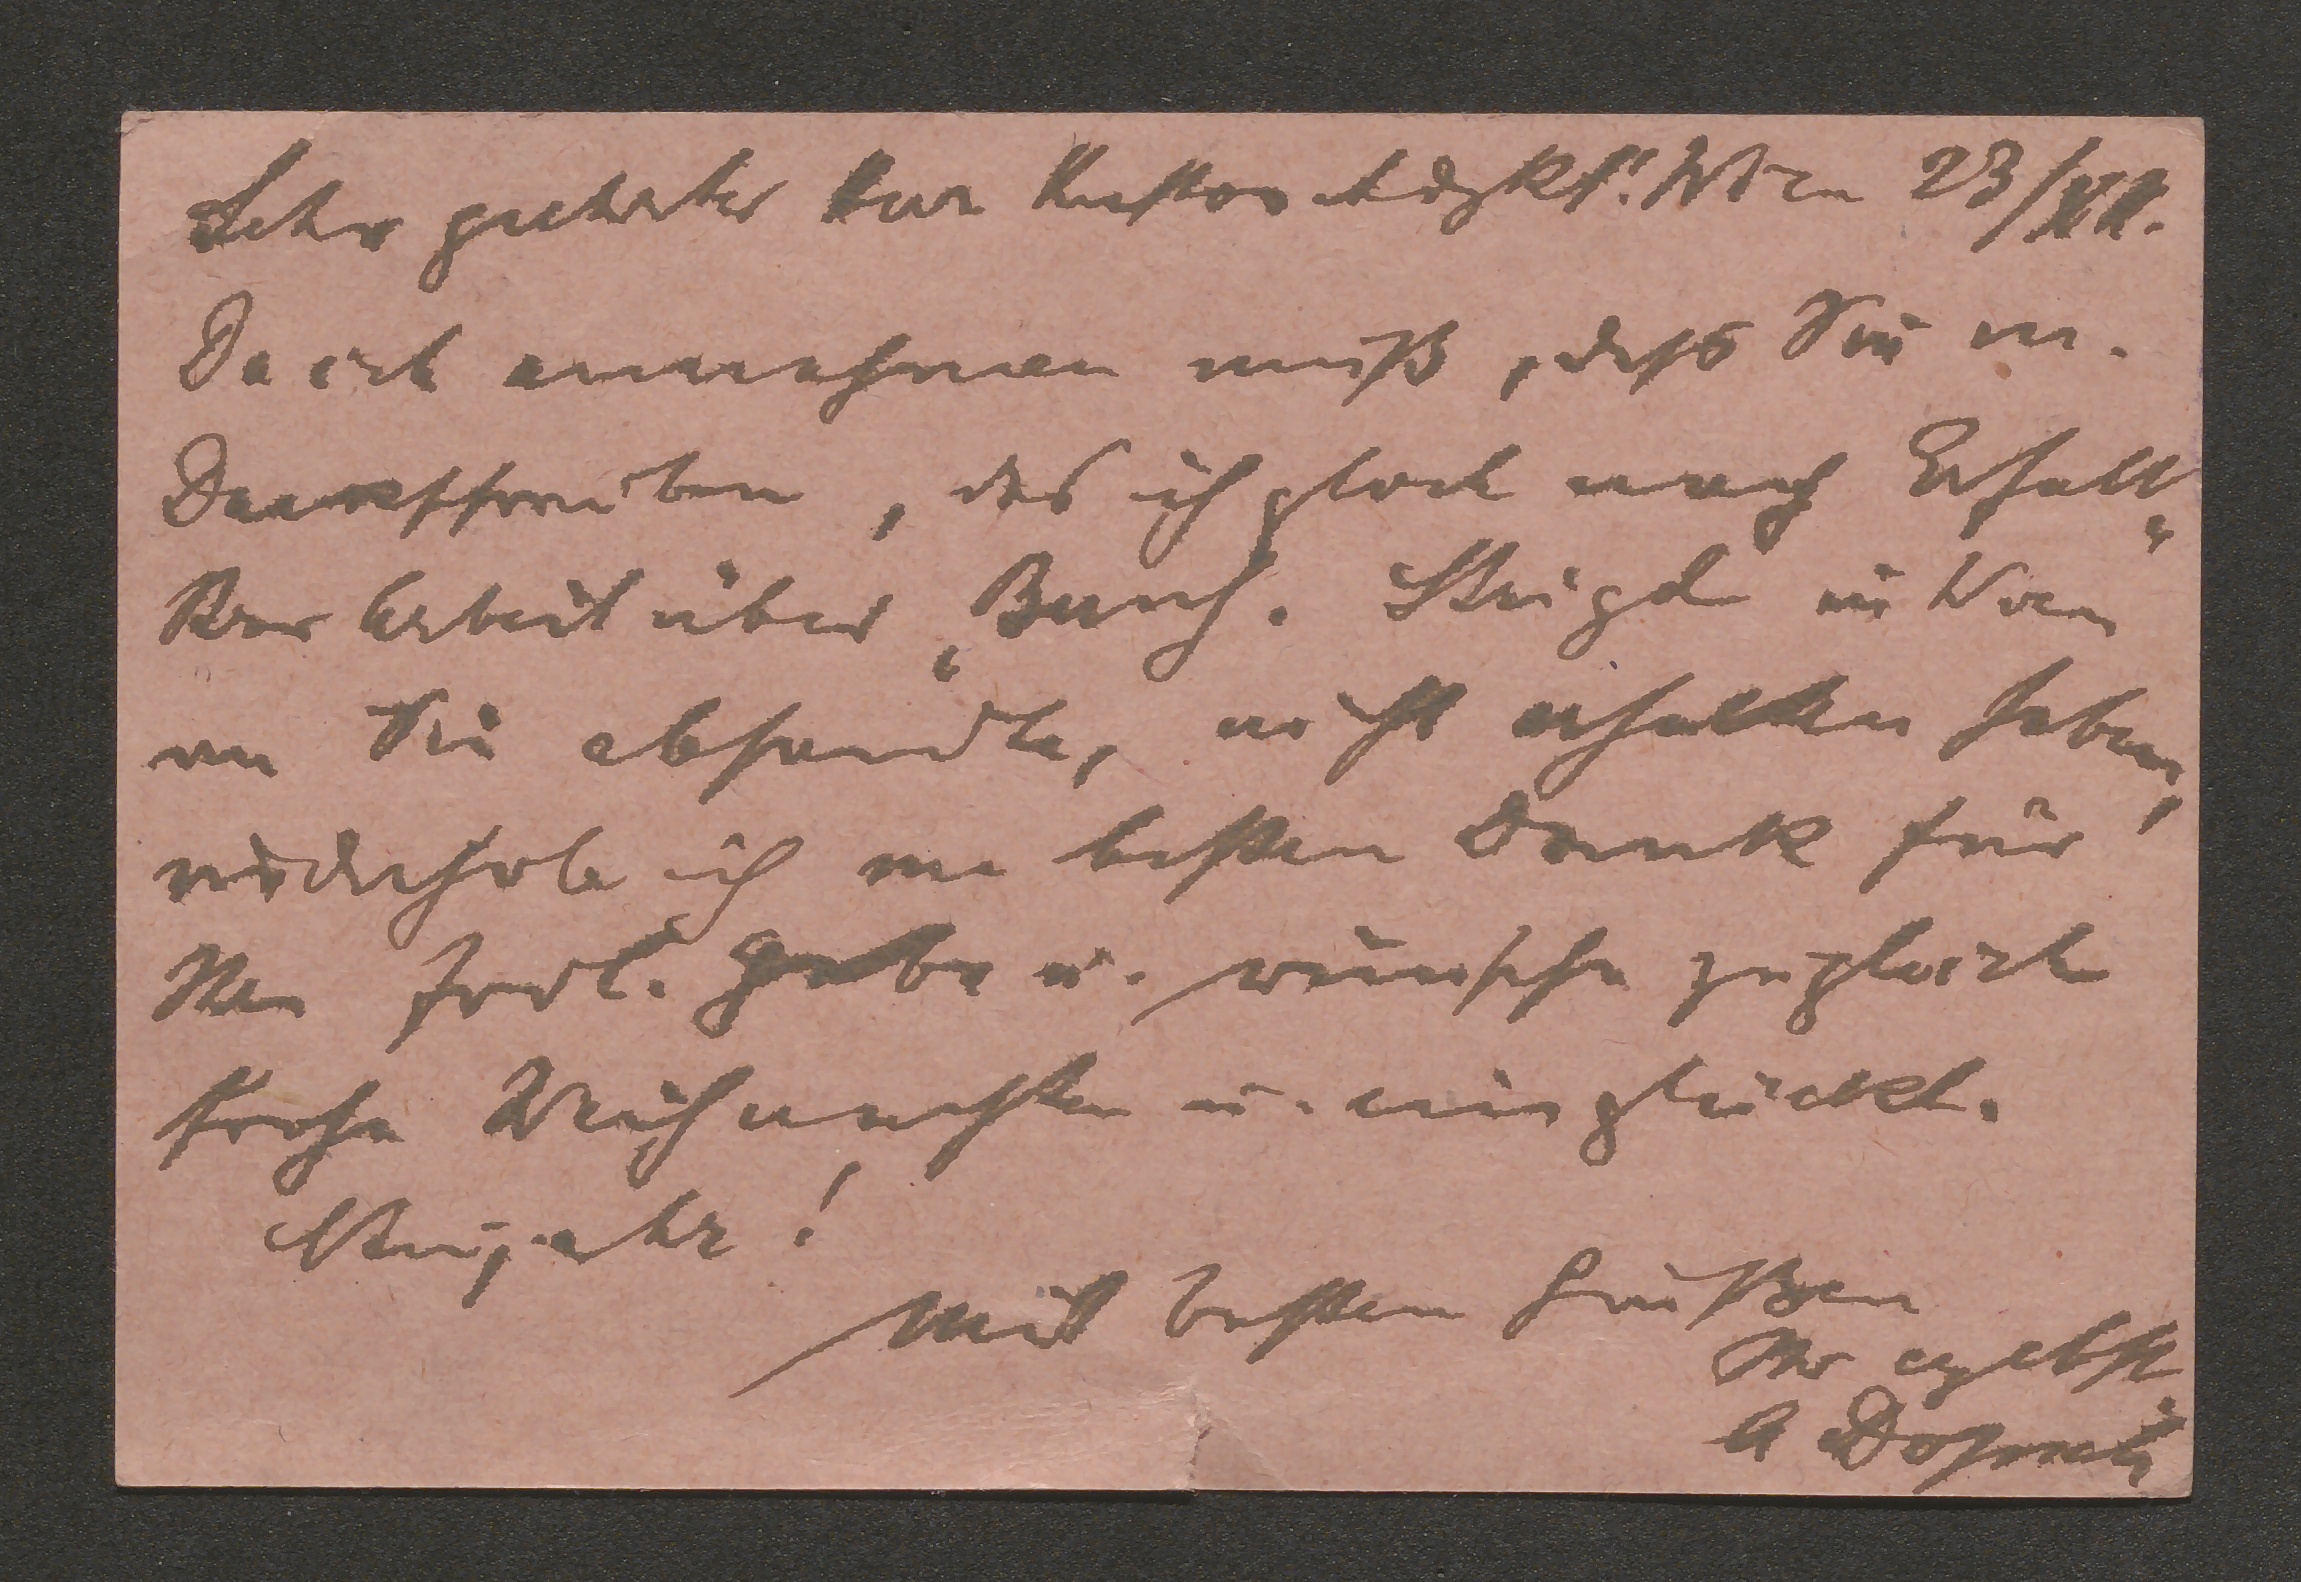 Sehr geehrter Herr Kustos Wien 23/XII.
Da ich annehmen muß, dass Sie m.
Dankschreiben, das ich gleich nach Erhalt
Ihrer Arbeit über „Burch. in Wien“
an Sie absandte, nicht erhalten haben,
wiederhole ich m. besten Dank für
Ihre frdl. Gabe u. wünsche zugleich
frohe Weihnachten u. ein glückl.
Neujahr!
Mit besten Grüßen
Ihr ergebst.
A